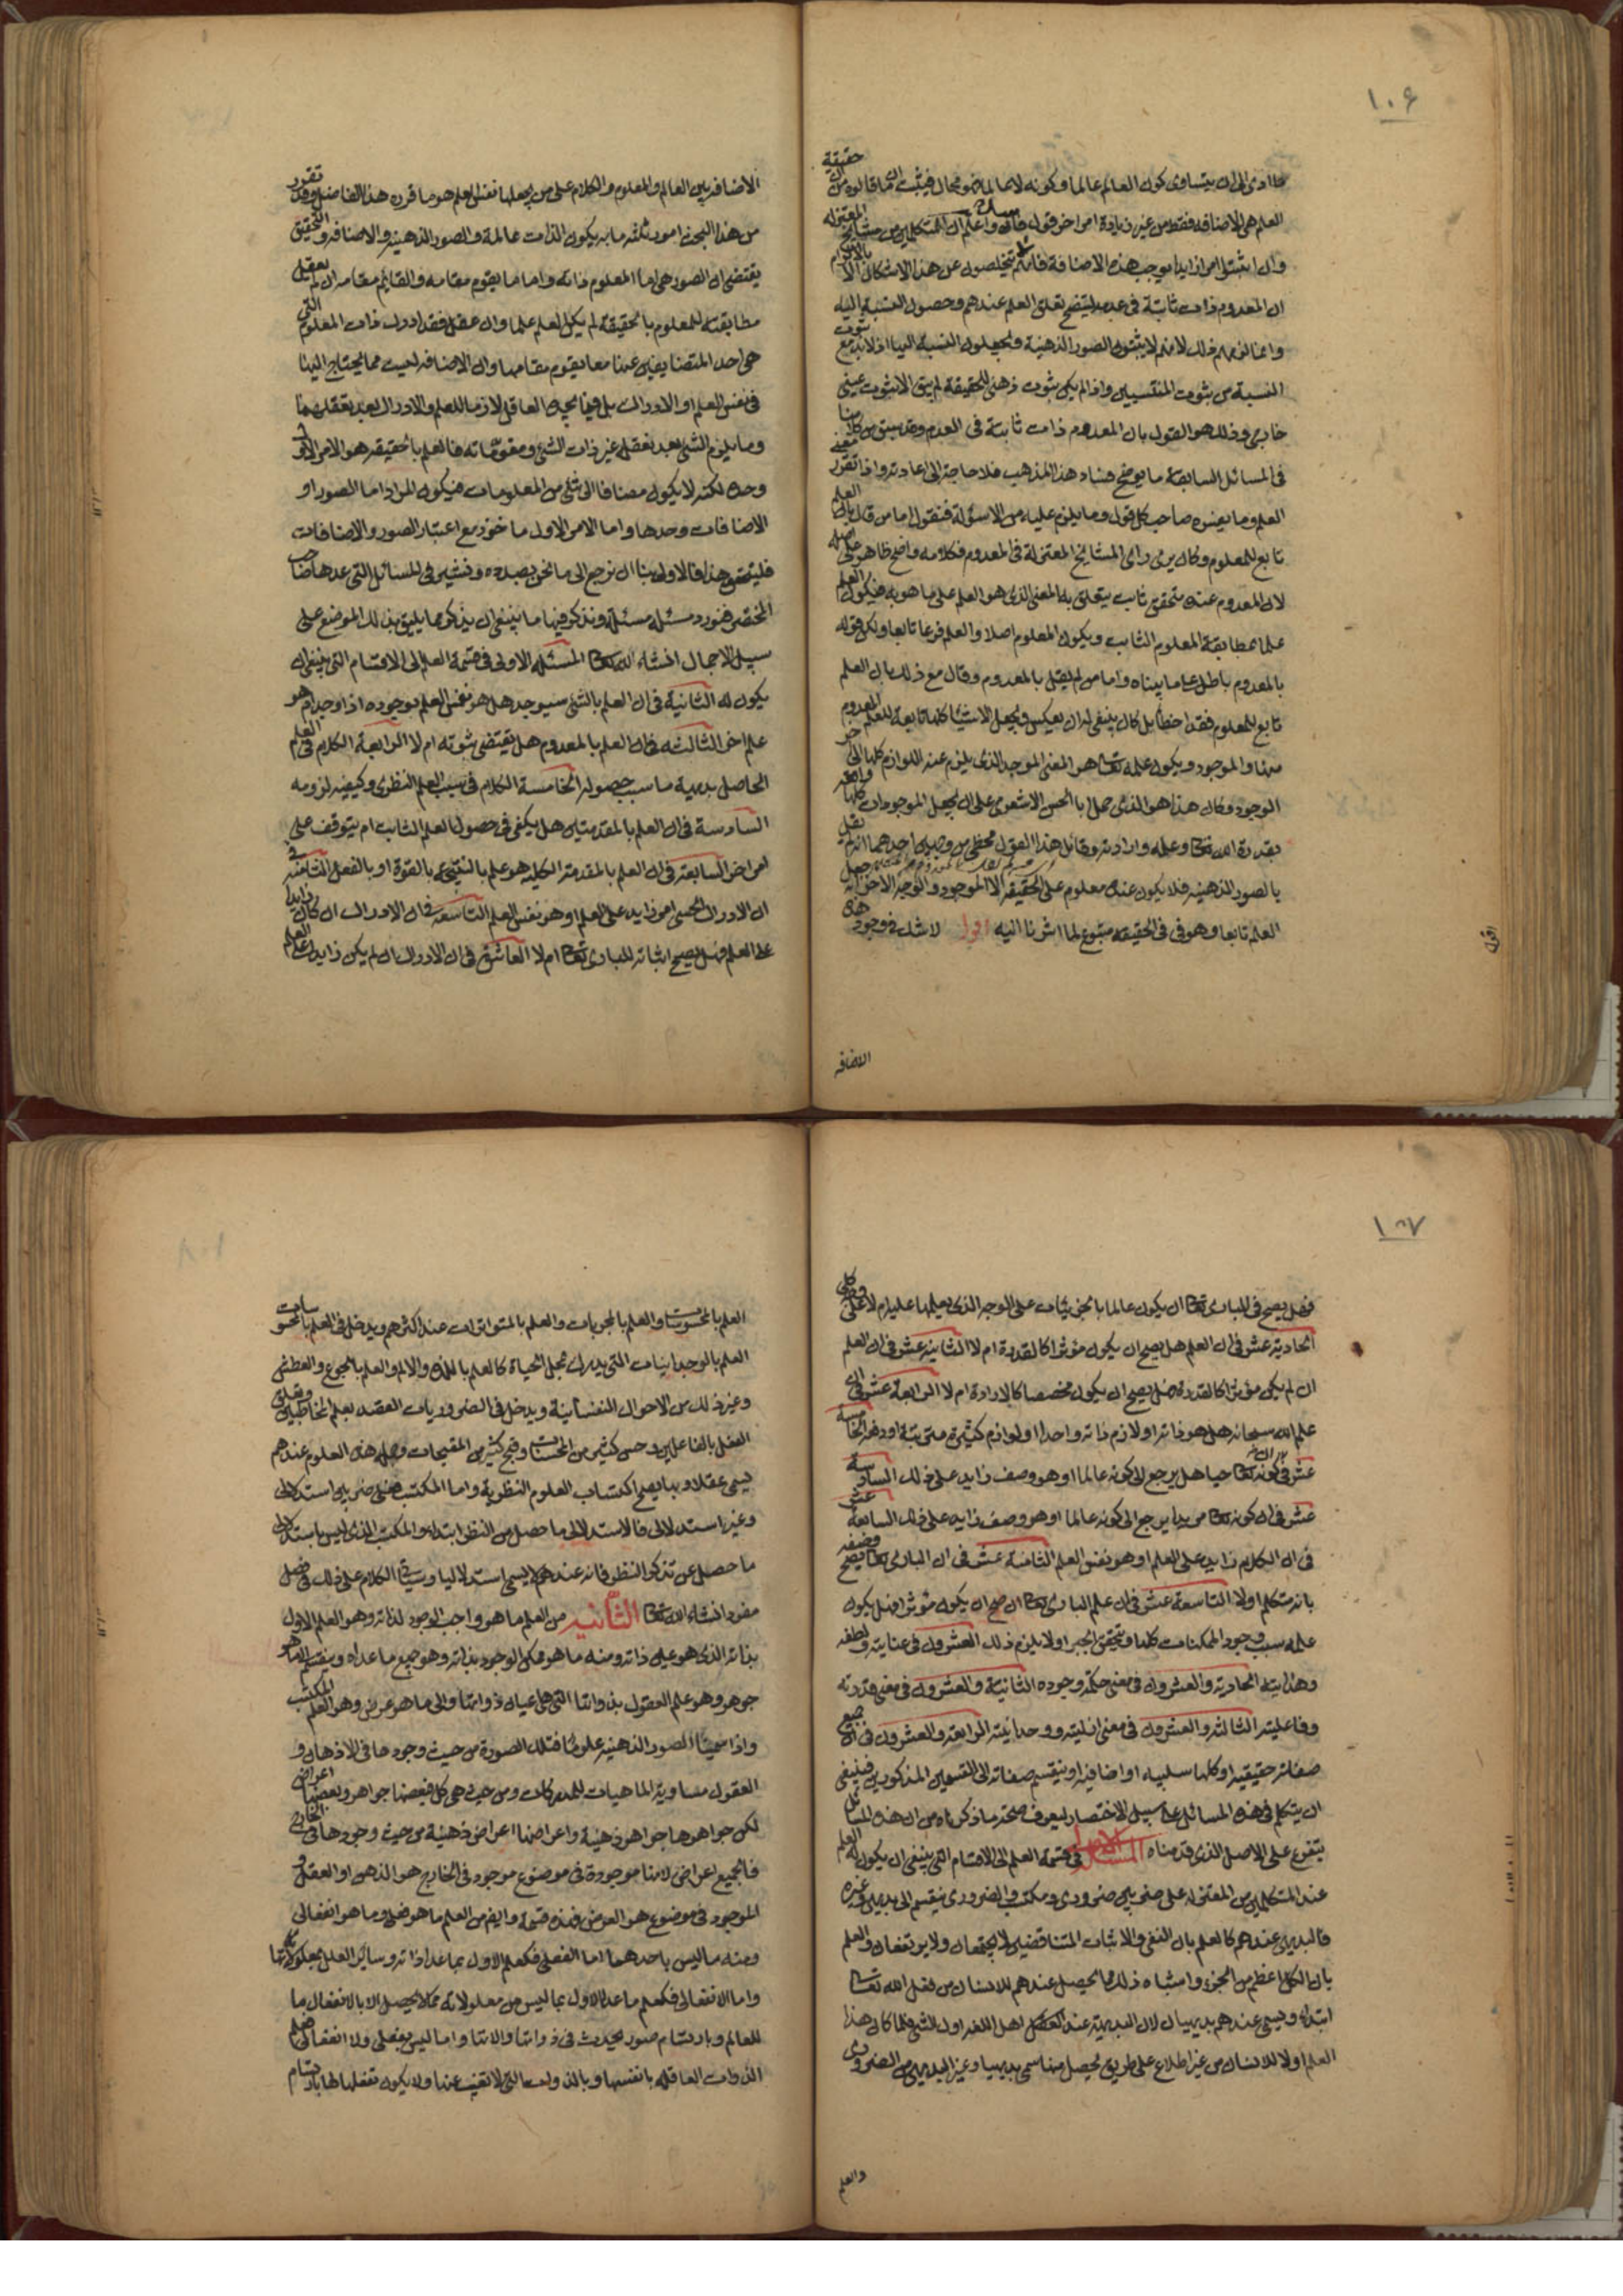 ١٠٦
ما ادى الى ان يتساوى كون العالم عالما وكونه لا عالما فهو محال فيثبت ان ما قالوه من ان حقيقة
العلم هى الاضافة فقط من غير زيادة امر اخر قول واعلم ان المتكلمين من مشايخ المعتزلة
وان اثبتوا امرا زايدا يوجب هذه الاضافة فانهم يتخلصون عن هذا الاشكال
ان المعدوم ذات ثابتة فى عدمه ليتضح تعلق العلم عندهم وحصول النسبة اليه
وانما الزمهم ذلك لانهم لا يثبتون الصور الذهنية ويجعلون النسبة اليها اذ لابد مع ثبوت
النسبة من ثبوت المنتسبين واذا لم يكن ثبوت ذهنى للحقيقة لم يبق الا ثبوت عينى
خارجى وذلك هو القول بان المعدوم ذات ثابتة فى العدم وقد سبق من كلامنا
فى المسائل السابقة ما يوضح فساد هذا المذهب فلا حاجة الى اعادته واذا تقرر معنى
العلم وما يفسره صاحب كل قول وما يلزم عليه من الاسئولة فنقول اما من قال بان العلم
تابع للمعلوم وكان يرى راى المشائخ المعتزلة فى المعدوم فكلامه واضح ظاهر على اصله
لان المعدوم عنده متحقق ثابت يتعلق به المعنى الذى هو العلم على ما هو به فيكون العلم
علما بمطابقة المعلوم الثابت ويكون المعلوم اصلا والعلم فرعا تابعا ولكن قوله
بالمعدوم باطل على ما بيناه واما من لم يقل بالمعدوم وقال مع ذلك بان العلم
تابع للمعلوم فقد اخطأ بل كان ينبغى له ان يعكس ويجعل الاشياء كلها تابعة للعلم المعدوم
منها والموجود ويكون علمه تعالى هو المعنى الموجد الذى يلزم عنه اللوازم كلها الى
الوجود وكان هذا هو الذى حمل ابا الحسن الاشعرى على ان يجعل الموجودات كلها واقعة
بقدرة الله تعالى وعلمه وارادته وقائل هذا القول مخطى من وجهين احدهما انه لم يقل
بالصور الذهنية فلا يكون عنده معلوم على الحقيقة الا الموجود والوجه الاخر انه جعل
العلم تابعا وهو فى الحقيقة متبوع لما اشرنا اليه اقول لا شك فى وجود هذه
الاضافه
اقول
الاضافة بين العالم والمعلوم والكلام على من يجعلها نفس العلم هو ما قرره هذا الفاضل وقد تقرر
من هذا البحث امور ثلثه ما به يكون الذات عالمة والصور الذهنية والاضافة والتحقيق
يقتضى ان الصور هى اما المعلوم ذاته واما ما يقوم مقامه والقائم مقامه ان لم يعقل
مطابقته للمعلوم بالحقيقة لم يكن العلم علما وان عقل فقد ادرك ذات المعلوم التى
هى احد المتضايفين عنها معا يقوم مقامها وان الاضافه ليست مما يحتاج اليها
فى نفس العلم او الادراك بل فيما يجده العاقل لازما للعلم والادراك بعد تعقلهما
وما يلزم الشئ بعد تعقله غير ذات الشئ ومقوماته فالعلم بالحقيقه هو الامر الاول
وحده لكنه لا يكون مضافا الى شئ من المعلومات فيكون المراد اما الصور او
الاضافات وحدها واما الامر الاول ماخوذ مع اعتبار الصور والاضافات
فليتحقق هذا فالاولى بنا ان نرجع الى ما نحن بصدده ونشير الى المسائل التى عدها صاحب
المختصر فنورد مسئلة مسئلة ونذكر فيها ما ينبغى ان يذكر مما يليق بذلك الموضع على
سبيل الاجمال انشاء الله تعالى المسئلة الاولى فى قسمة العلم الى الاقسام التى ينبغى ان
يكون له الثانية فى ان العلم بالشئ سيوجد هل هو نفس العلم بوجوده اذا وجد ام هو
علم اخر الثالثه فى ان العلم بالمعدوم هل يقتضى ثبوته ام لا الرابعة الكلام فى العلم
الحاصل بديهية ما سبب حصوله الخامسة الكلام فى سبب العلم النظرى وكيفية لزومه
السادسة فى ان العلم بالمقدمتين هل يكفى فى حصول العلم الثابت ام يتوقف على
امر اخر السابعة فى ان العلم بالمقدمة الكلية هو علم بالنتيجة بالقوة او بالفعل الثامنة فى
ان الادراك الحسى امر زايد على العلم او هو نفس العلم التاسعة فى ان الادراك ان كان زايدا
على العلم فهل يصح اثباته للبارى تعالى ام لا العاشرة فى ان الادراك ان لم يكن زايدا على العلم
١٠٧
فهل يصح فى البارى تعالى ان يكون عالما بالجزئيات على الوجه الذى يعلمها عليه ام لا
الحادية عشر فى ان العلم هل يصح ان يكون مؤثرا كالقدرة ام لا الثانية عشر فى ان العلم
ان لم يكن مؤثرا كالقدرة فهل يصح ان يكون مخصصا كالارادة ام لا الرابعة عشر فى ان
علم الله سبحانه هل هو ذاته او لازم ذاته واحدا او لوازم كثيرة مترتبة او دفعة الخامسة
عشر فى كونه تعالى حيا هل يرجع الى كونه عالما او هو وصف زايد على ذلك السادسة
عشر فى ان كونه تعالى مريدا يرجع الى كونه عالما او هو وصف زايد على ذلك السابعة عشر
فى ان الكلام زايد على العلم او هو نفس العلم الثامنة عشر فى ان البارى تعالى يصح وصفه
بانه متكلم او لا التاسعة عشر فى ان علم البارى تعالى ان صح ان يكون مؤثرا فهل يكون
علمه سبب وجود الممكنات كلها ويتحقق الجبر او لا يلزم ذلك العشرون فى عنايته ولطفه
وهدايته الحادية والعشرون فى معنى حكمة وجوده الثانية والعشرون فى معنى قدرته
وفاعليته الثالثة والعشرون فى معنى ازليته ووحدانيته الرابعة والعشرون فى ان جميع
صفاته حقيقية او كلها سلبية او اضافية او ينقسم صفاته الى القسمين المذكورين فينبغى
ان يتكلم فى هذه المسائل على سبيل الاختصار ليعرف صحة ما ذكرناه من ان هذه المسائل
يتفرع على الاصل الذى قدمناه المسئلة الاولى فى قسمة العلم الى الاقسام التى ينبغى ان يكون له العلم
عند المتكلمين من المعتزلة على ضربين ضرورى ومكتسب والضرورى ينقسم الى بديهى وغيره
فالبديهى عندهم كالعلم بان النفى والاثبات المتناقضين لا يجتمعان ولا يرتفعان والعلم
بان الكل اعظم من الجزء وامثاه ذلك مما يحصل عندهم للانسان من فعل الله تعالى
ابتداء ويسمى عندهم بديهيا لان البديهة عند اهل اللغة اول الشئ فلما كان هذا
العلم اولا للانسان من غير اطلاع على طريق يحصل منها سمى بديهيا وغير البديهى من الضرورى
والعلم
العلم بالمحسوسات والعلم بالمجربات والعلم بالمتواترات عند اكثرهم ويدخل فى العلم بالمحسوسات
العلم بالوجدانيات التى يدرك بمحل الحياة كالعلم باللذة والالم والعلم بالجوع والعطش
وغير ذلك من الاحوال النفسانية ويدخل فى الضروريات العلم بقصد المخاطبين وتعلق
الفعل بالفاعلين وحسن كثير من المحسنات وقبح كثير من المقبحات وجملة هذه العلوم عندهم
يسمى عقلا وبها يصح اكتساب العلوم النظرية واما المكتسب فعلى ضربين استدلالى
وغير استدلالى فالاستدلالى ما حصل من النظر ابتداء والمكتسب الذى ليس باستدلالى
ما حصل عن تذكر النظر فانه عندهم لا يسمى استدلاليا وسيأتى الكلام على ذلك فى فصل
مفرد انشاء الله تعالى الثانية من العلم ما هو واجب الوجود لذاته وهو العلم الاول
بذاته الذى هو عين ذاته ومنه ما هو ممكن الوجود بذاته وهو جميع ما عداه وينقسم الى ما هو
جوهر وهو علم العقول بذواتها التى هى اعيان ذواتها والى ما هو عرض وهو العلم المكتسب
واذا سمينا الصور الذهنية علوما فتلك الصورة من حيث وجودها فى الاذهان و
العقول مساوية الماهيات للمدركات ومن حيث هى كل فبعضها جواهر وبعضها اعراض
لكن جواهرها جواهر ذهنية واعراضها اعراض ذهنية من حيث وجودها فى الخارج
فالجميع اعراض لانها موجودة فى موضوع موجود فى الخارج هو الذهن او العقل و
الموجود فى موضوع هو العرض فهذه قسمة وايضا من العلم ما هو فعلى وما هو انفعالى
ومنه ما ليس باحدهما اما الفعلى فكعلم الاول بما عدا ذاته وسائر العلل بمعلولاتها
واما الانفعالى فكعلم ما عدا الاول بما ليس من معلولاته مما لا يحصل الا بالانفعال ما
للعالم وبارتسام صور يحدث فى ذواتها والاتها واما ليس بفعلى ولا انفعالى فعلم
الذوات العاقلة بانفسها وبالذوات التى لا تغيب عنها ولا يكون تعقلها لها بارتسام